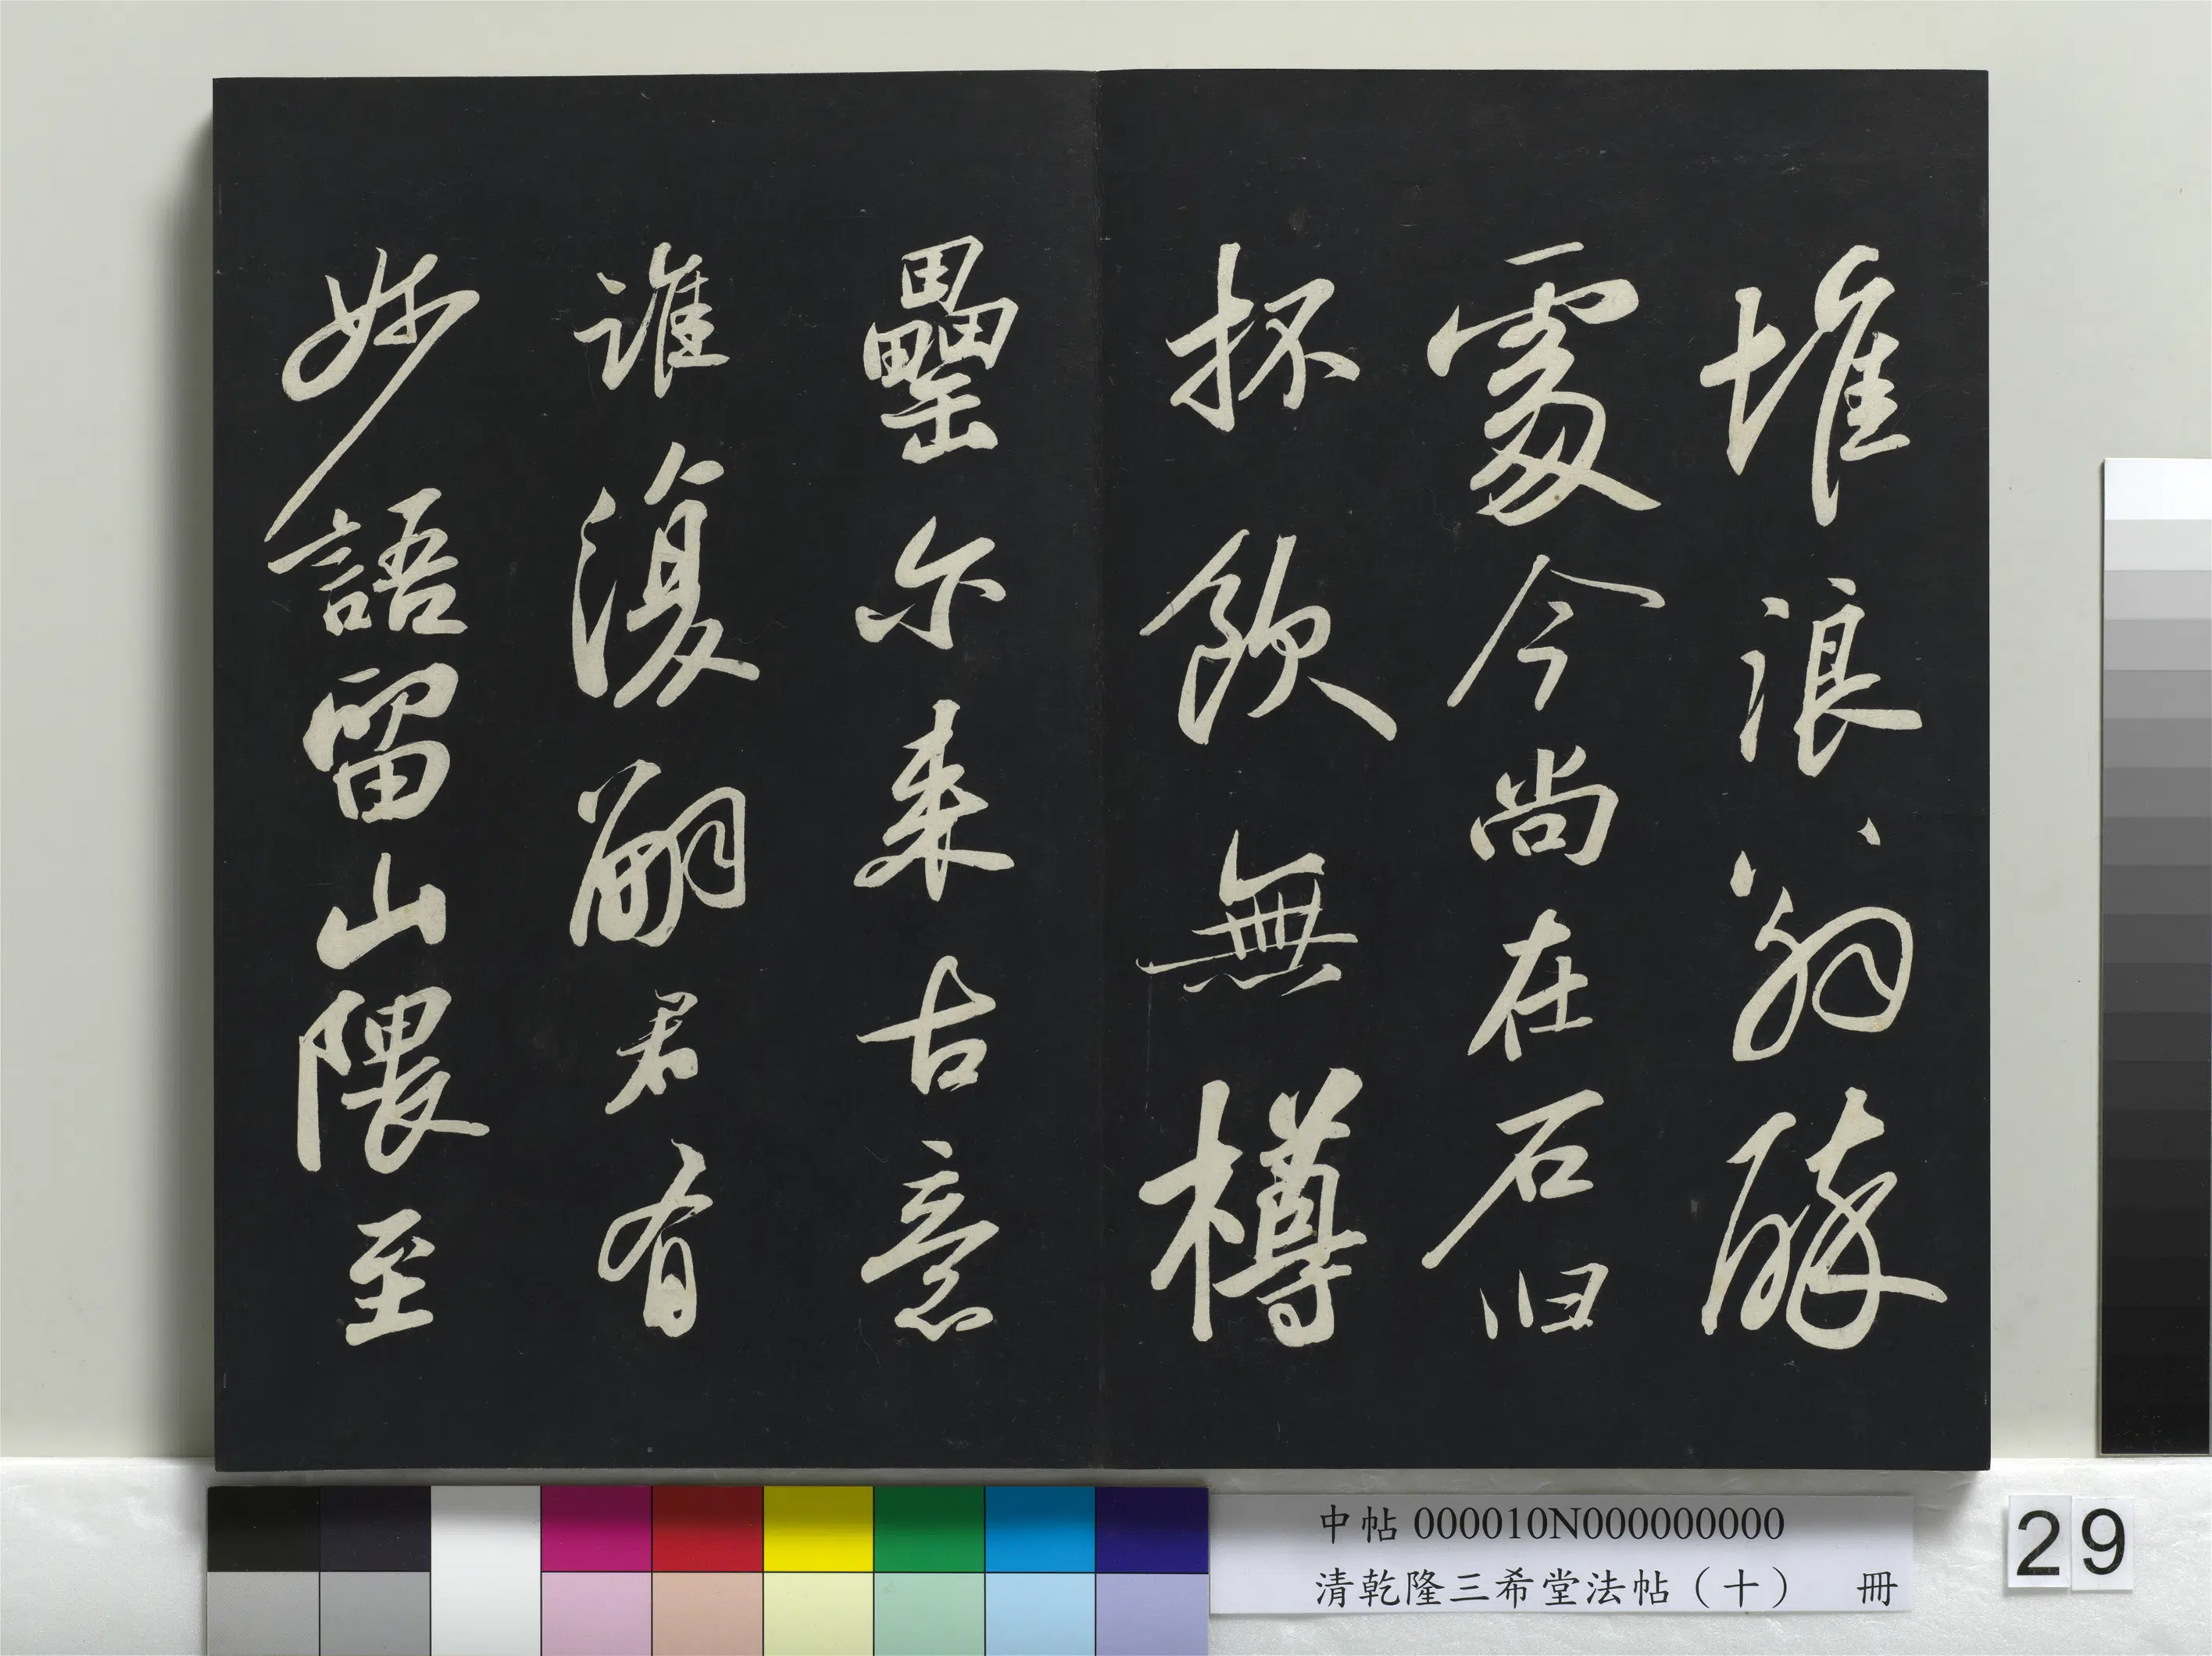 堆浪、翁醉
處今尚在石臼
抔飲無樽
罍尒来古意
誰復嗣君有
妙語留山隈至
中帖 000010N000000000
清乾隆三希堂法帖（十） 冊
29